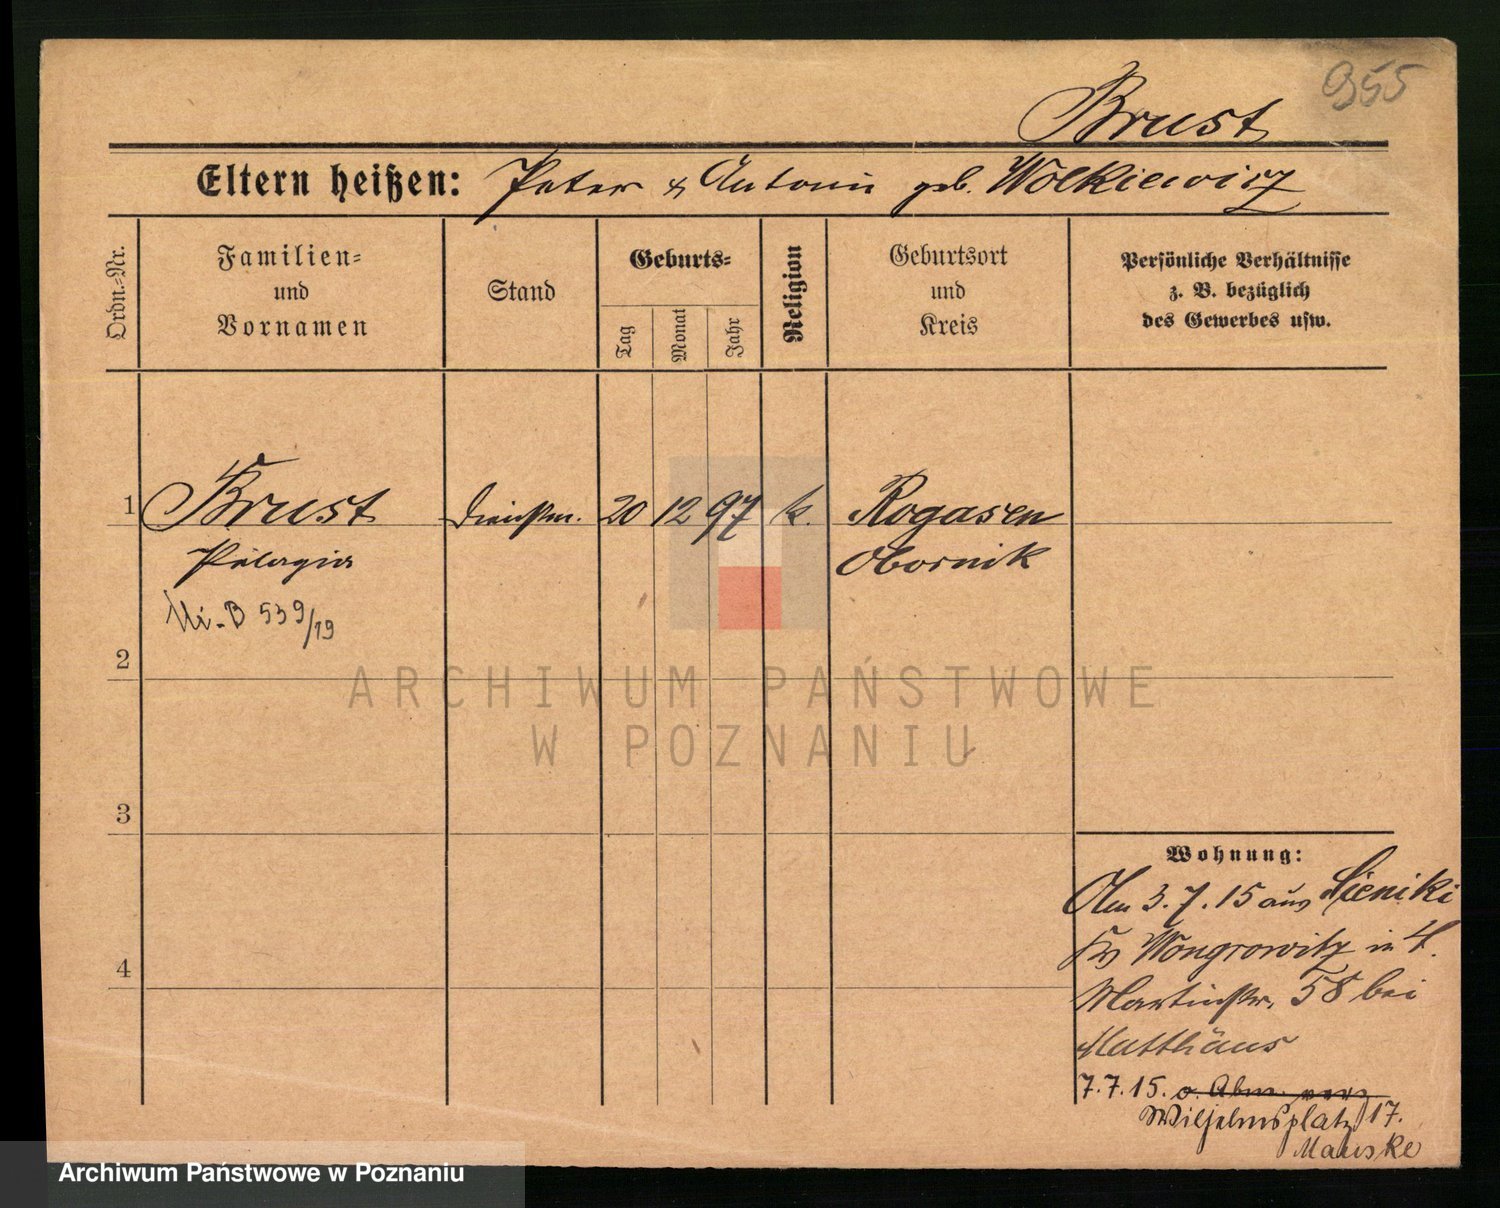 955
Brust
Eltern heißen: Peter & Antonie geb. Wolkiewicz
Ordn.-Nr.
Familien-
und
Vornamen
Stand
Geburts-
Tag
Monat
Jahr
Religion
Geburtsort
und
Kreis
Persönliche Verhältnisse
z. B. bezüglich
des Gewerbes usw.
1 Brust Dienstm. 20 12 97 k. Rogasen
Pelagia Obornik
B 539/19
2
3
4
Wohnung:
3.7.15 aus
Wongrowitz in
Martinstr. 58 bei
Matthäus
7.7.15. o. Abm. verz
Wilhelmsplatz 17.
Mauske
ARCHIWUM PAŃSTWOWE
W POZNANIU
Archiwum Państwowe w Poznaniu